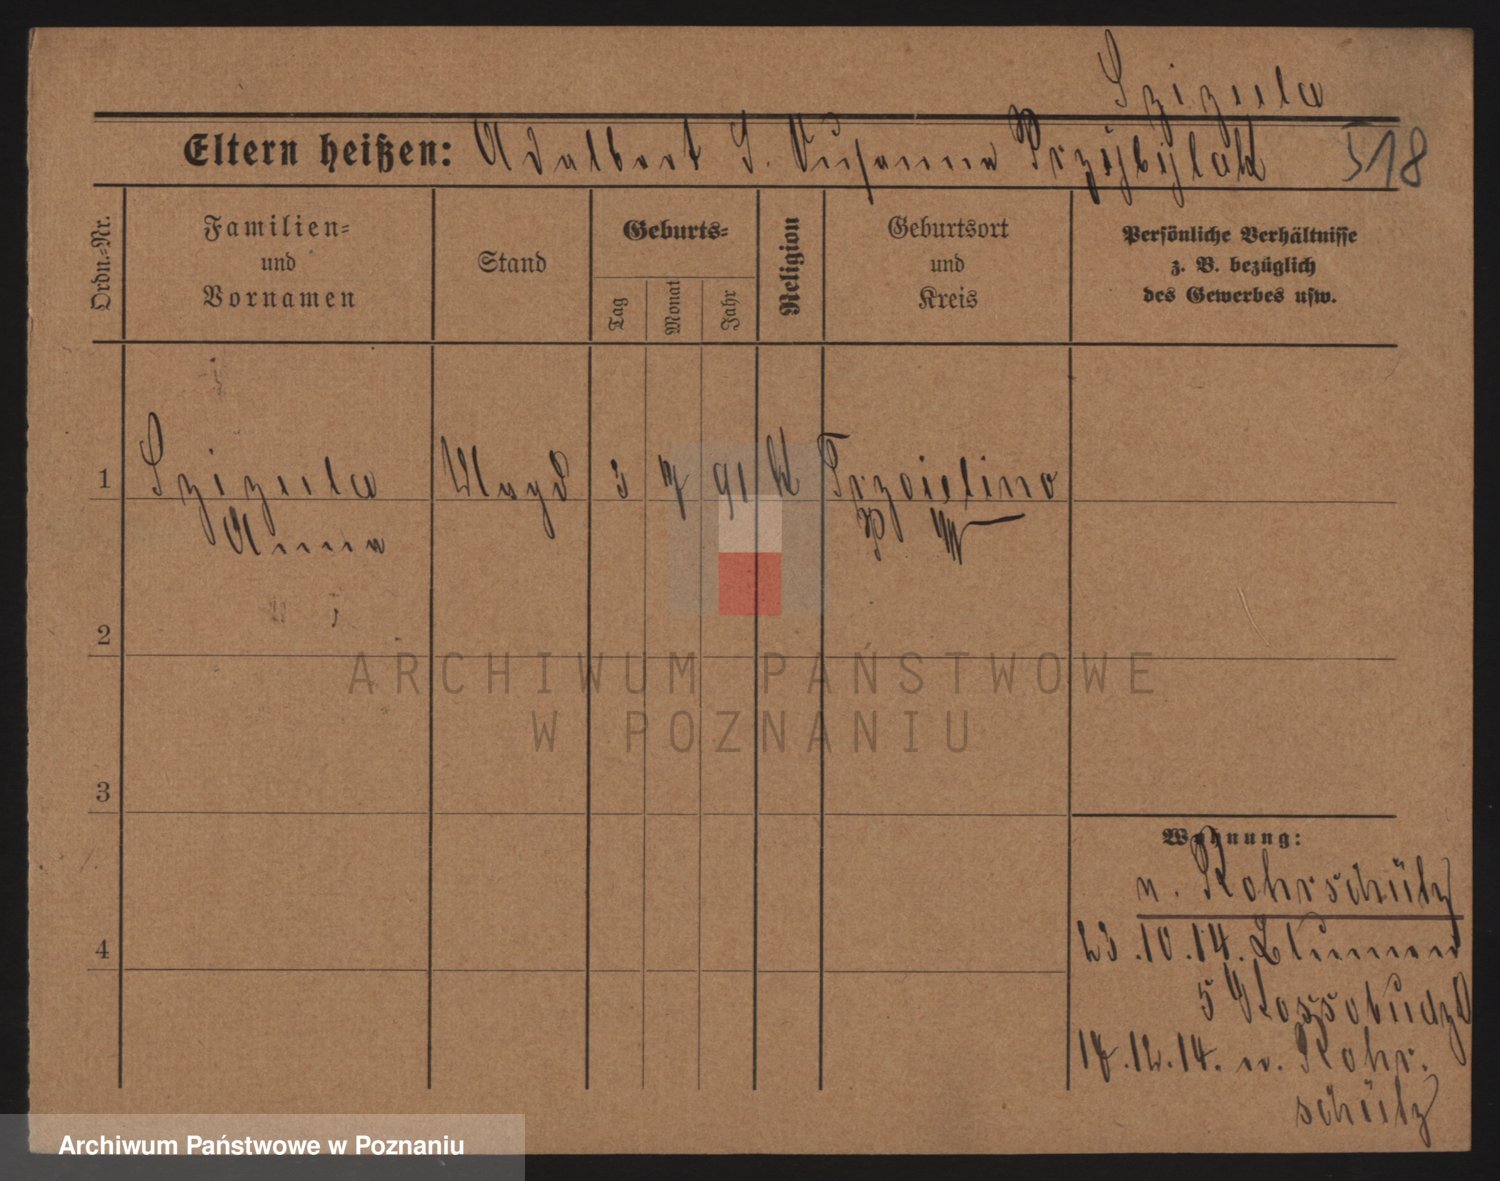 Szizula
Eltern heißen: Adalbert S. Susanna Przybylak 518
Ordn.-Nr.
Familien-
und
Vornamen
Stand
Geburts-
Tag
Monat
Jahr
Religion
Geburtsort
und
Kreis
Persönliche Verhältnisse
z. B. bezüglich
des Gewerbes usw.
1 Szizula Magd 3 7 91 K
Anna
2
3
4
Wohnung:
n. Rohrschütz
23.10.14. Blumen
5 Kossobudzd
17.12.14. n. Rohr.
schütz
ARCHIWUM PAŃSTWOWE
W POZNANIU
Archiwum Państwowe w Poznaniu